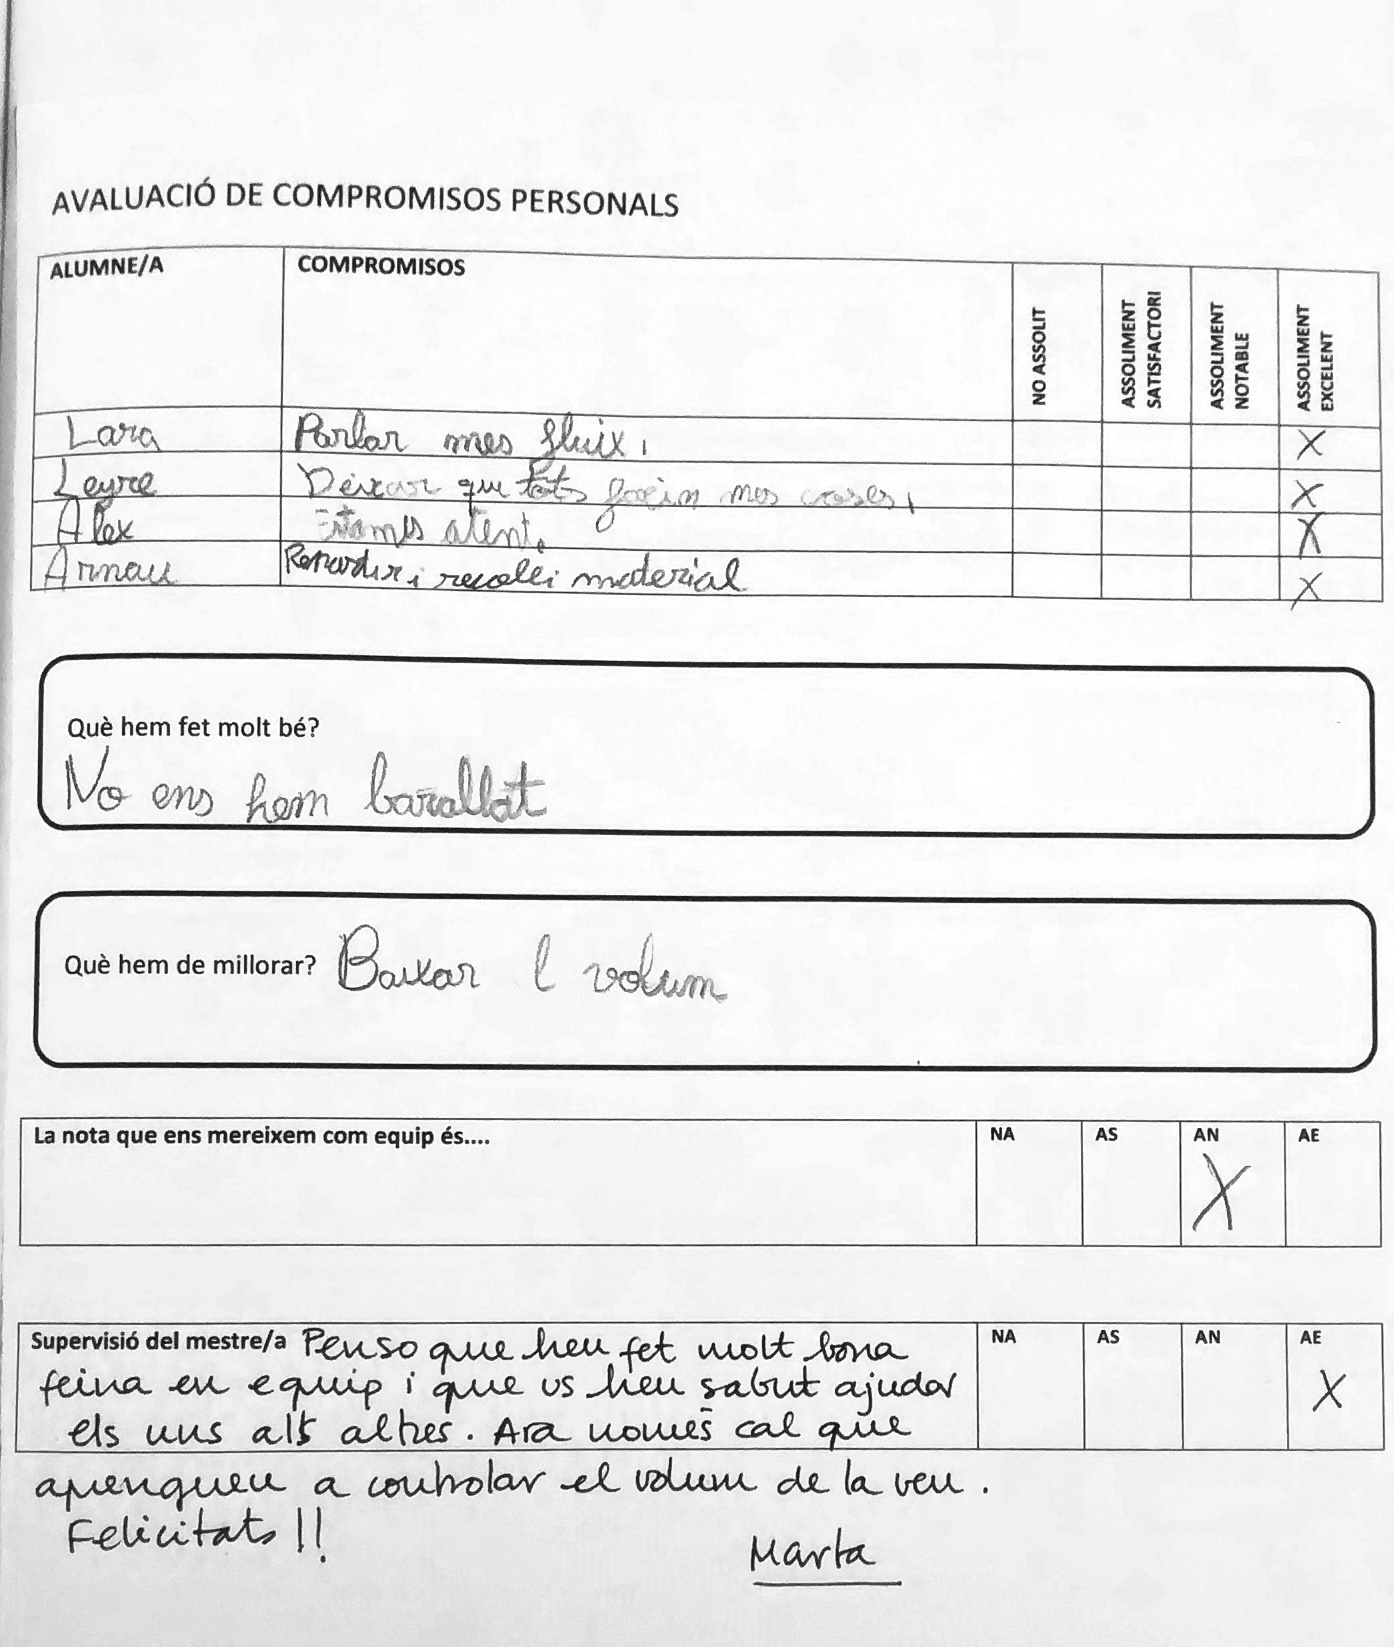 AVALUACIÓ DE COMPROMISOS PERSONALS
ALUMNE/A COMPROMISOS NO ASSOLIT ASSOLIMENT SATISFACTORI ASSOLIMENT NOTABLE ASSOLIMENT EXCELENT
Lara Parlar mes fluix. X
Leyre Deixar que tots facin mes coses. X
Alex atent. X
Arnau i material X
Què hem fet molt bé?
No ens hem barallat
Què hem de millorar? Baixar l volum
La nota que ens mereixem com equip és.... NA AS AN AE
X
Supervisió del mestre/a Penso que heu fet molt bona NA AS AN AE
feina en equip i que us heu sabut ajudar X
els uns als altres. Ara només cal que
aprengueu a controlar el volum de la veu.
Felicitats!!
Marta